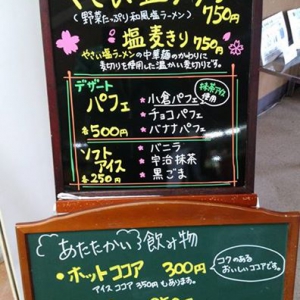 やさい塩ラーメン
(野菜たっぷり和風塩ラーメン) 750円
塩麦きり 750円
やさい塩ラーメンの中華麺のかわりに
麦切りを使用した温かい麦切りです。
デザート
パフェ
各500円
★小倉パフェ
抹茶アイス使用
★チョコパフェ
★バナナパフェ
ソフト
アイス
各250円
★バニラ
★宇治抹茶
★黒ごま
あたたかい飲み物
・ホットココア 300円
アイスココア350円もあります。
コクのある
おいしいココアです。